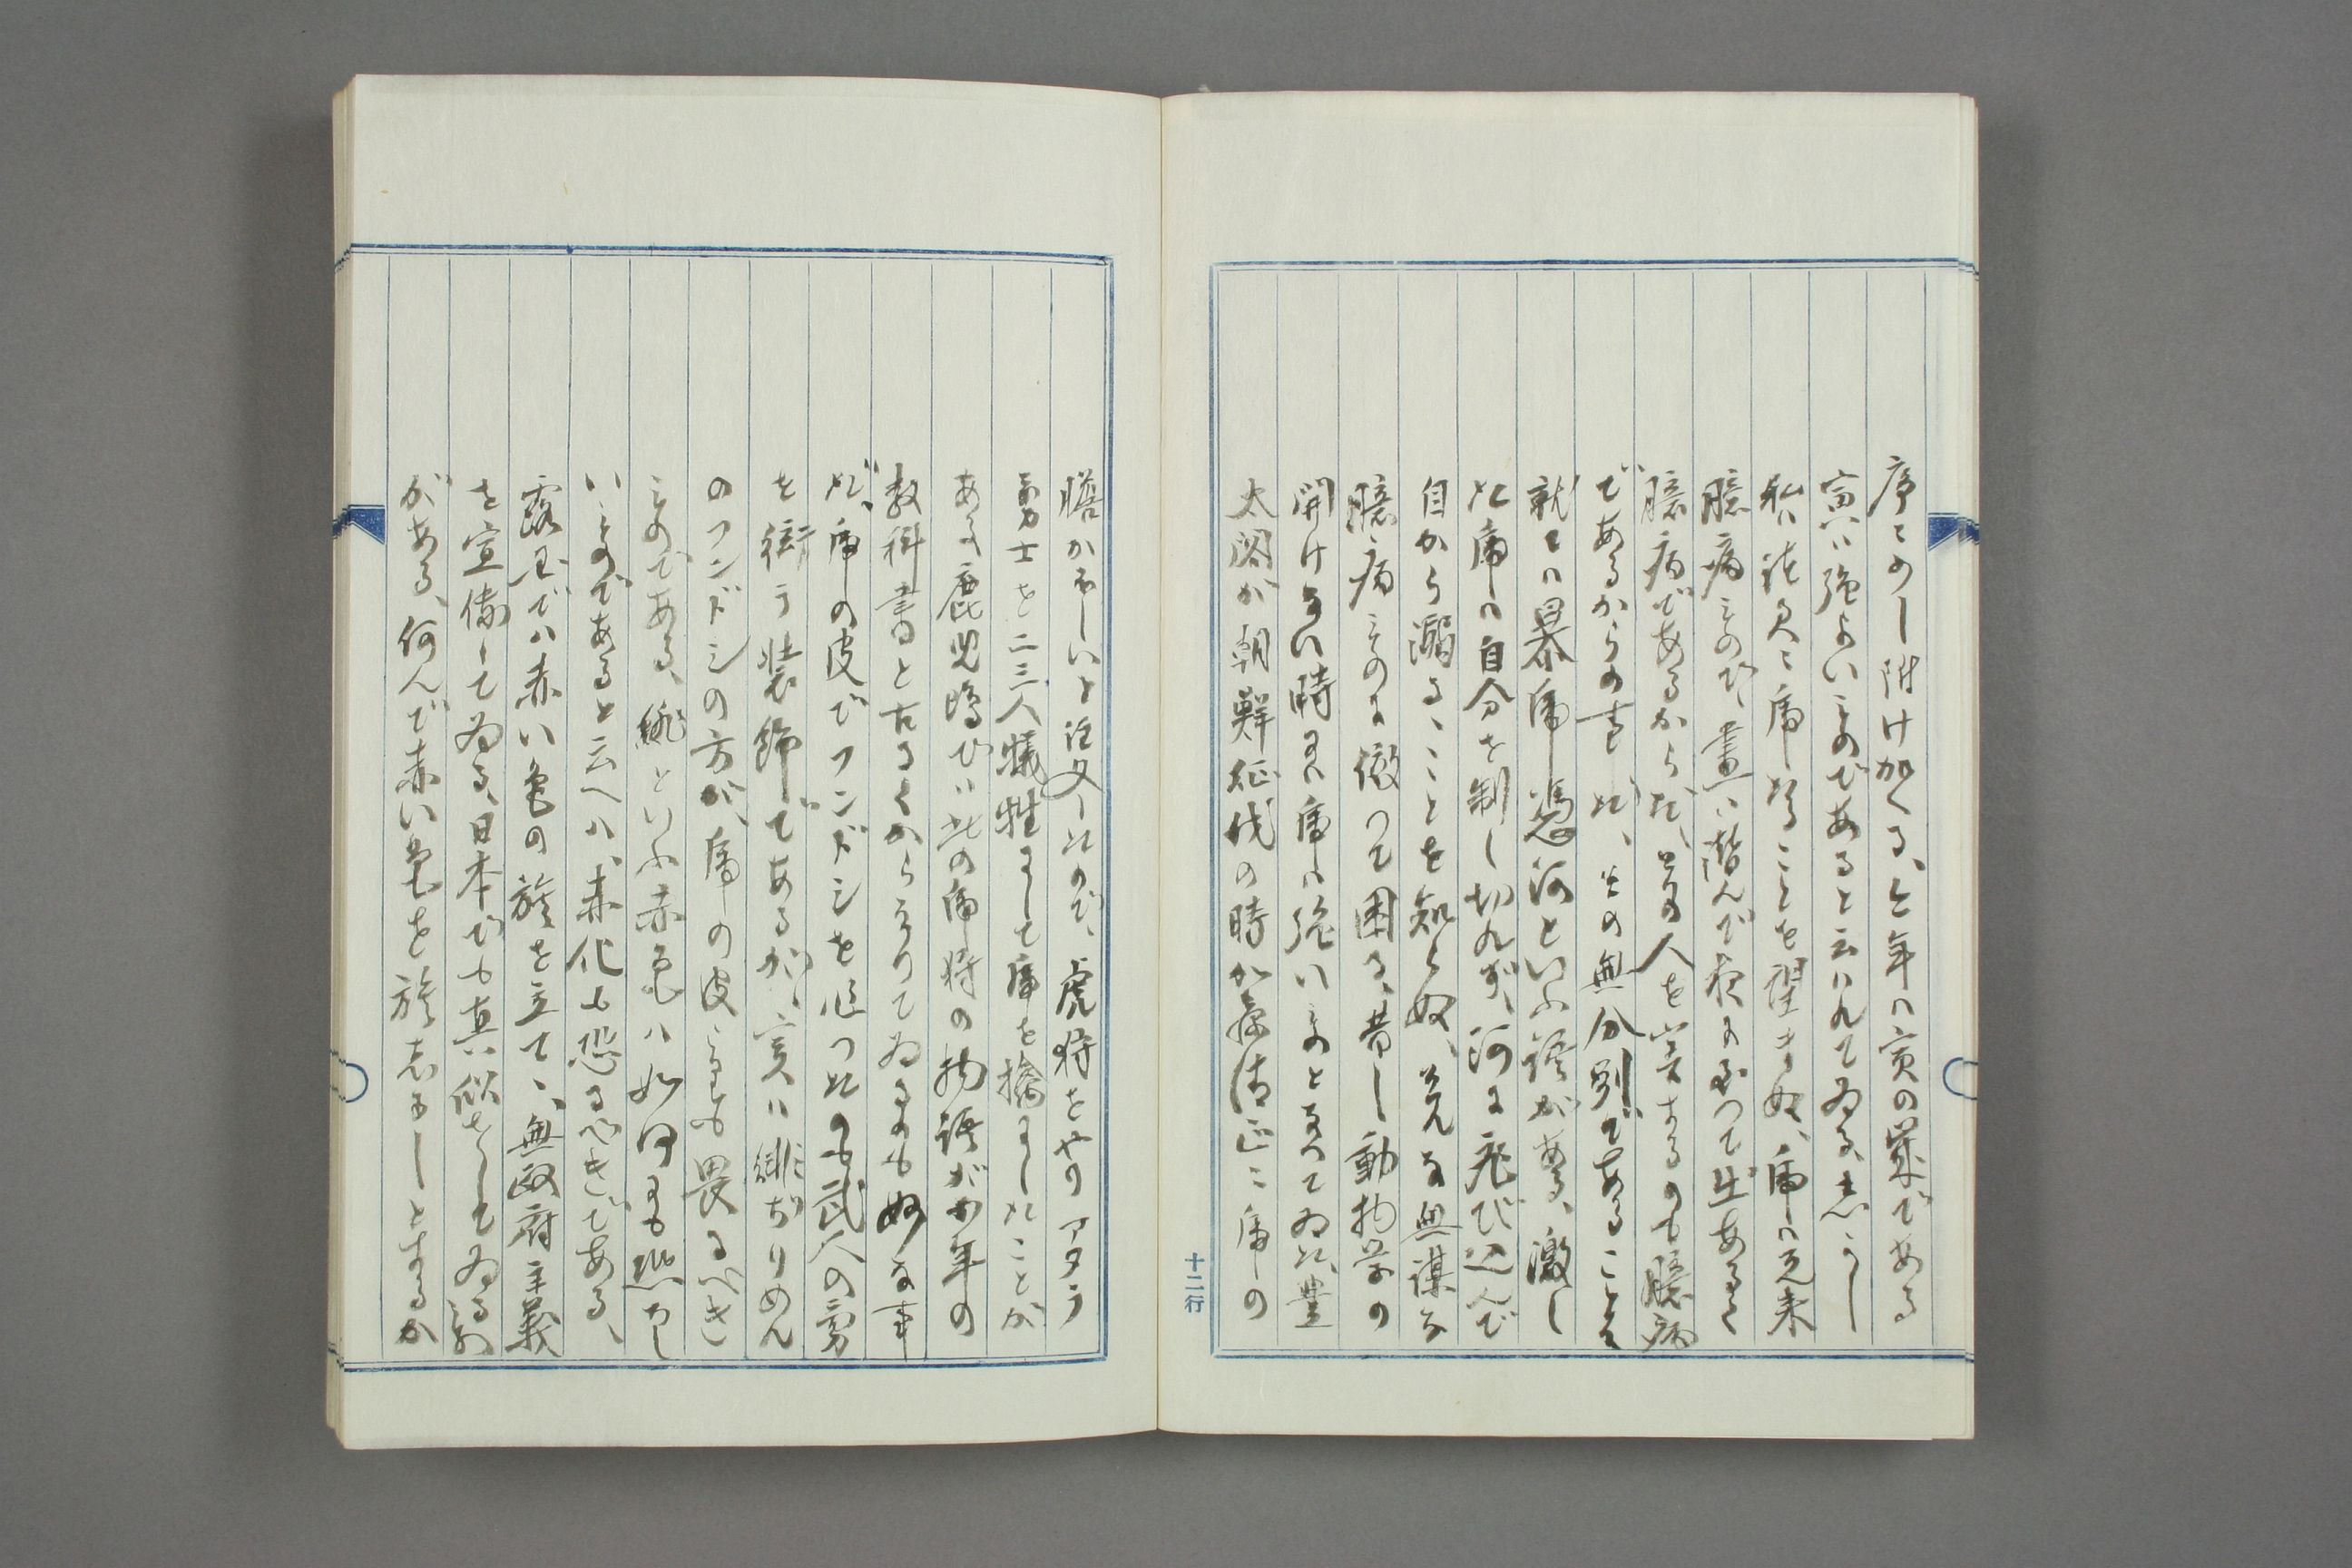 序にめし附け加へる、今年は寅の歳である
寅は強よいものであると云はれてゐる、悲うし
私は決して虎たることを望まぬ、虎は元来
臆病ものだ、昼は潜んで夜になつて出あるく
臆病であるからだ、其の人を害するのも臆病
であるからの事だ、その無分別であることを
就ては暴虎憑河といふ語がある、激し
た虎は自分を制し切れず、河に飛び込んで
自から溺るゝことを知らぬ、そんな無謀な
臆病ものに倣つて困る、昔し動物学の
開けない時には虎は強いものとなつてゐた、豊
太閤が朝鮮征伐の時加藤清正に虎の
膽がほしいと注文したので、虎狩をやりアタラ
勇士を二三人犠牲にして虎を擒にしたことが
ある、鹿児島では此の虎狩の物語が少年の
教科書と古るくからなつてゐるのも妙な事
だ、虎の皮でフンドシを作つたのも武人の勇
を衒う装飾であるが、実は緋ぢりめん
のフンドシの方が、虎の皮よりも畏るべき
ものである、緋といふ赤色は如何にも恐ろし
いものであると云へば、赤化も恐るべきである、
露国では赤い色の旗を立て、無政府主義
を宣伝してゐる、日本でも真似をしてゐる者
がある、何んで赤い色を旗志るしとするか
十二行